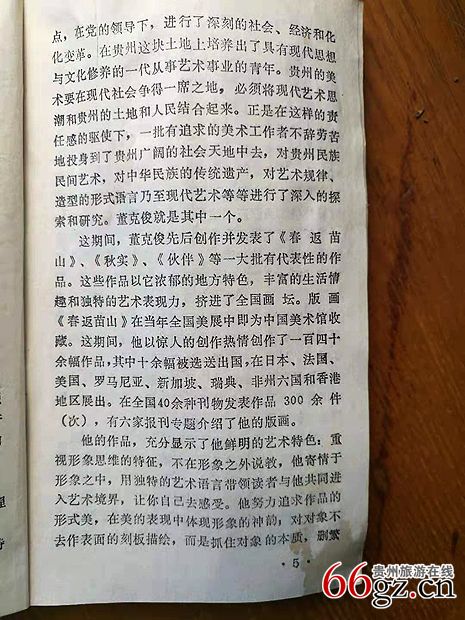 点，在党的领导下，进行了深刻的社会、经济和化
化变革。在贵州这块土地上培养出了具有现代思想
与文化修养的一代从事艺术事业的青年。贵州的美
术要在现代社会争得一席之地，必须将现代艺术思
潮和贵州的土地和人民结合起来。正是在这样的责
任感的驱使下，一批有追求的美术工作者不辞劳苦
地投身到了贵州广阔的社会天地中去，对贵州民族
民间艺术，对中华民族的传统遗产，对艺术规律、
造型的形式语言乃至现代艺术等等进行了深入的探
索和研究。董克俊就是其中一个。
这期间，董克俊先后创作并发表了《春返苗
山》、《秋实》、《伙伴》等一大批有代表性的作
品。这些作品以它浓郁的地方特色，丰富的生活情
趣和独特的艺术表现力，挤进了全国画坛。版画
《春返苗山》在当年全国美展中即为中国美术馆收
藏。这期间，他以惊人的创作热情创作了一百四十
余幅作品，其中十余幅被选送出国，在日本、法国、
美国、罗马尼亚、新加坡、瑞典、非州六国和香港
地区展出。在全国40余种刊物发表作品300余件
（次），有六家报刊专题介绍了他的版画。
他的作品，充分显示了他鲜明的艺术特色：重
视形象思维的特征，不在形象之外说教，他寄情于
形象之中，用独特的艺术语言带领读者与他共同进
入艺术境界，让你自己去感受。他努力追求作品的
形式美，在美的表现中体现形象的神韵，对对象不
去作表面的刻板描绘，而是抓住对象的本质，删繁
·5·
贵州旅游在线
66gz.cn